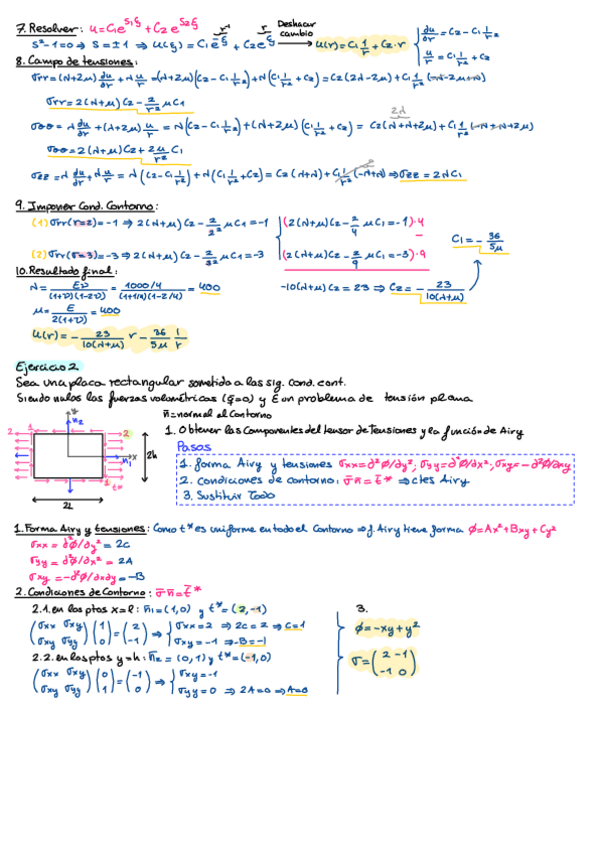 7. Resolver: u=C₁e^{S₁ξ} + C₂e^{S₂ξ}
S²-1=0 ⇒ S=±1 ⇒ u(ξ)=C₁e^{-ξ} + C₂e^{ξ} → u(r)=C₁ 1/r + C₂·r
r⁻¹ r Deshacer cambio
du/dr = C₂-C₁ 1/r²
u/r = C₁ 1/r² + C₂
8. Campo de tensiones:
σrr=(λ+2μ) du/dr + λ u/r = (λ+2μ)(C₂-C₁ 1/r²)+λ(C₁ 1/r² + C₂) = C₂(2λ-2μ)+C₁ 1/r² (-λ-2μ+λ)
σrr=2(λ+μ)C₂ - 2/r² μC₁
2λ
σθθ=λ du/dr +(λ+2μ) u/r = λ(C₂-C₁ 1/r²)+(λ+2μ)(C₁ 1/r² + C₂) = C₂(λ+λ+2μ)+C₁ 1/r² (-λ+λ+2μ)
σθθ=2(λ+μ)C₂+ 2μ/r² C₁
σzz=λ du/dr + λ u/r = λ(C₂-C₁ 1/r²)+λ(C₁ 1/r² +C₂) = C₂(λ+λ)+C₁ 1/r² (-λ+λ) ⇒ σzz=2λC₂
9. Imponer Cond. Contorno:
(1) σrr(r=2)=-1 ⇒ 2(λ+μ)C₂ - 2/2² μC₁=-1 (2(λ+μ)C₂ - 2/4 μC₁=-1)·4
-
(2) σrr(r=3)=-3 ⇒ 2(λ+μ)C₂ - 2/3² μC₁=-3 (2(λ+μ)C₂ - 2/9 μC₁=-3)·9
C₁=- 36/5μ
10. Resultado final:
λ= Eν/((1+ν)(1-2ν)) = 1000/4/((1+1/4)(1-2/4)) = 400
-10(λ+μ)C₂=23 ⇒ C₂=- 23/10(λ+μ)
μ= E/2(1+ν) = 400
u(r)=- 23/10(λ+μ) r - 36/5μ 1/r
Ejercicio 2
Sea una placa rectangular sometida a las sig. Cond. cont.
Siendo nulas las fuerzas volumétricas (g̅=0) y E un problema de tensión plana
n̄=normal al Contorno
1. Obtener las Componentes del tensor de Tensiones y la función de Airy
Pasos
1. forma Airy y tensiones σxx=∂²ϕ/∂y²; σyy=∂²ϕ/∂x²; σxy=-∂²ϕ/∂xy
2. Condiciones de contorno: σ̿n̄=t̄* ⇒ ctes Airy
3. Sustituir Todo
n₂
2
1
2
x
2h
n₁
2
1
t*
2L
1. Forma Airy y tensiones: Como t* es uniforme en todo el Contorno ⇒ f. Airy tiene forma ϕ=Ax²+Bxy+Cy²
σxx = ∂²ϕ/∂y² = 2C
σyy = ∂²ϕ/∂x² = 2A
σxy = -∂²ϕ/∂x∂y = -B
2. Condiciones de Contorno: σ̿n̄=t̄*
2.1. en los ptos x=l: n̄₁=(1,0) y t*=(2,-1)
(σxx σxy; σxy σyy)(1; 0)=(2; -1) ⇒ {σxx=2 ⇒ 2C=2 ⇒ C=1; σxy=-1 ⇒ -B=-1}
2.2. en los ptos y=h: n̄₂=(0,1) y t*=(-1,0)
(σxx σxy; σxy σyy)(0; 1)=(-1; 0) ⇒ {σxy=-1; σyy=0 ⇒ 2A=0 ⇒ A=0}
3.
ϕ=-xy+y²
σ=(2 -1; -1 0)